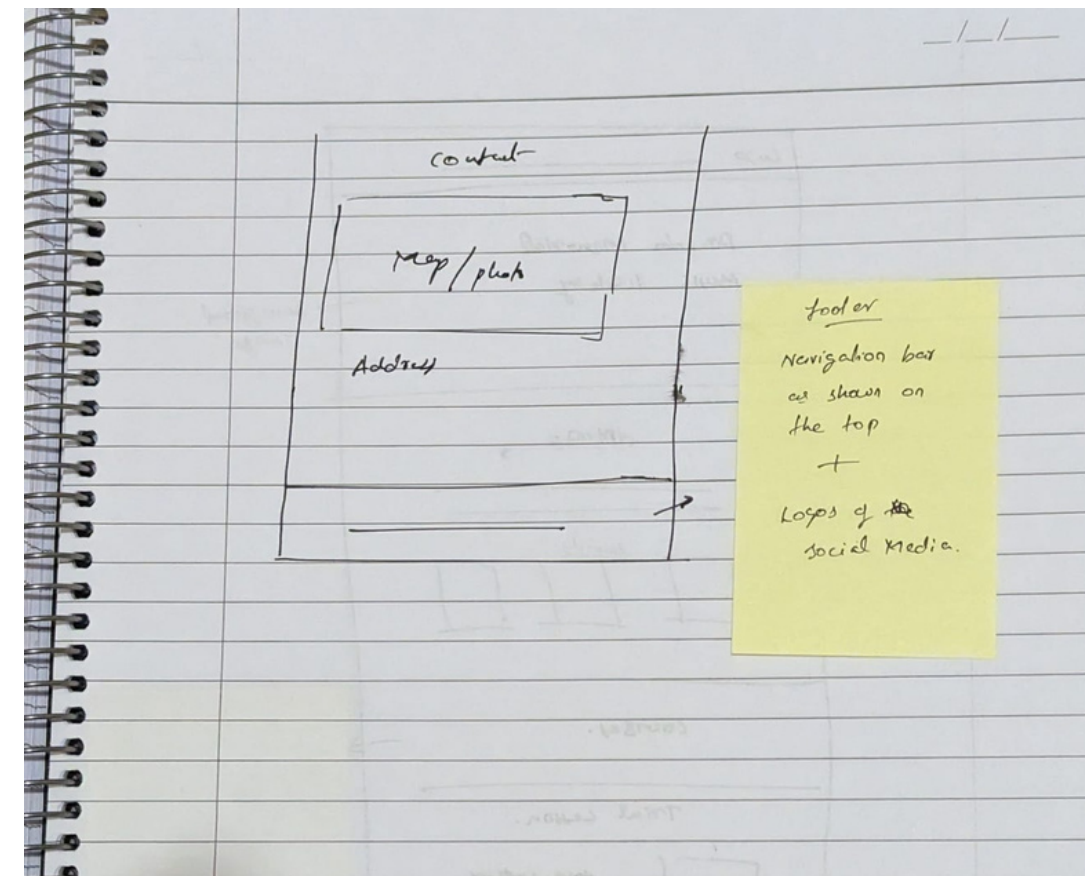 __/__/____
Contact
Map/photo
Address
footer
Navigation bar
as shown on
the top
+
Logos of
social Media.